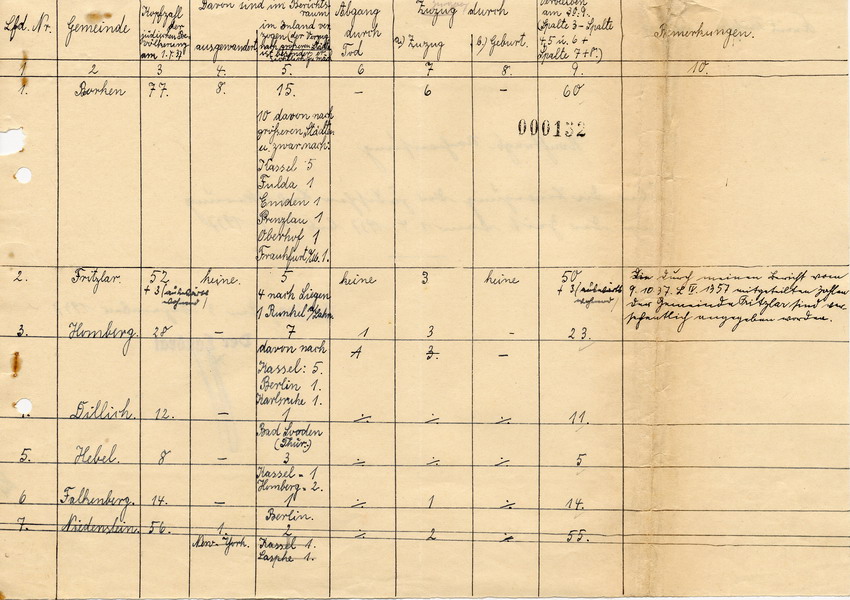 Lfd. Nr.
Gemeinde
Kopfzahl der jüdischen Bevölkerung am 1.7.37
Davon sind im Berichtsraum
ausgewandert
im Inland verzogen
Abgang durch Tod
Zuzug durch
a) Zuzug
b) Geburt.
verbleiben am 30.9. Spalte 3 - Spalte 4, 5 u. 6 + Spalte 7 + 8.
Bemerkungen.
1 2 3 4. 5. 6 7 8. 9. 10.
1. Borken 77. 8. 15. - 6 - 60
10 davon nach
größeren Städten
u. zwar nach:
000132
Kassel 5
Fulda 1
Emden 1
Prenzlau 1
Oberhof 1
Frankfurt 1.
2. Fritzlar. 52 keine. 5 keine 3 keine 50
+ 3 (auswärts wohnend)
4 nach Siegen
1 Runkel a/Lahn
+ 3 (auswärts wohnend)
Die durch meinen Bericht vom
9.10.37. L IV. 1357 mitgeteilten Zahlen
der Gemeinde Fritzlar sind versehentlich angegeben worden.
3. Homberg. 28 - 7 1 3 - 23.
davon nach
Kassel: 5.
Berlin 1.
Karlsruhe 1.
3. -
Dillich. 12. - 1 ./. ./. ./. 11.
Bad Sooden
(Thür.)
5. Hebel. 8 - 3 ./. ./. ./. 5
Kassel - 1
Homberg - 2.
6 Falkenberg. 14. - 1 ./. 1 ./. 14.
Berlin.
7. Niedenstein. 56. 1. 2 ./. 2 ./. 55.
New-York.
Kassel 1.
Laasphe 1.